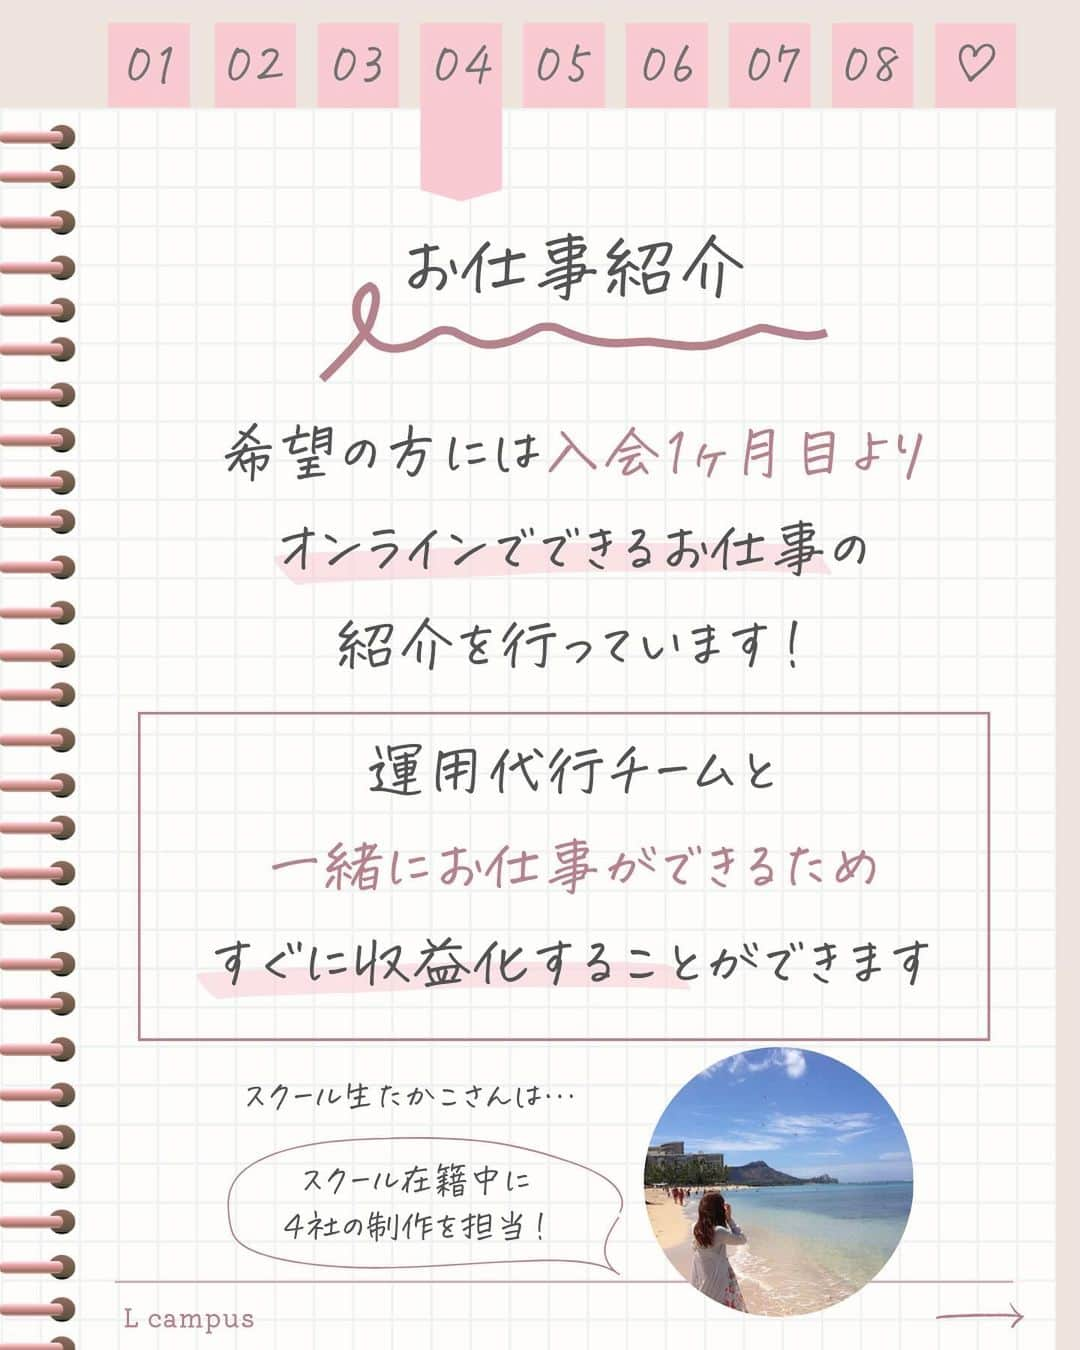 01 02 03 04 05 06 07 08 ♡
お仕事紹介
希望の方には入会1ヶ月目より
オンラインでできるお仕事の
紹介を行っています!
運用代行チームと
一緒にお仕事ができるため
すぐに収益化することができます
スクール生たかこさんは…
スクール在籍中に
4社の制作を担当!
L campus